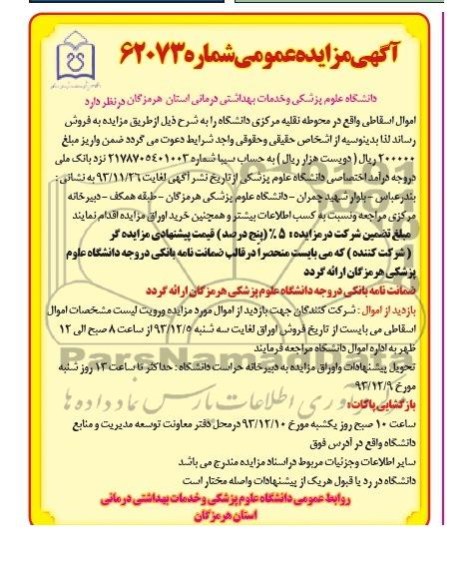 آگهی مزایده عمومی شماره ۶۲۰۷۳
دانشگاه علوم پزشکی وخدمات بهداشتی درمانی استان هرمزگان درنظر دارد
اموال اسقاطی واقع در محوطه نقلیه مرکزی دانشگاه را به شرح ذیل ازطریق مزایده به فروش
رساند لذا بدینوسیه از اشخاص حقیقی وحقوقی واجد شرایط دعوت می گردد ضمن واریز مبلغ
۲۰۰۰۰۰ ریال ( دویست هزار ریال ) به حساب سیبا شماره ۲۱۷۸۷۰۵۴۰۱۰۰۳ نزد بانک ملی
دروجه درآمد اختصاصی دانشگاه علوم پزشکی از تاریخ نشر آگهی لغایت ۹۳/۱۱/۲۶ به نشانی :
بندرعباس - بلوار شهید چمران - دانشگاه علوم پزشکی هرمزگان - طبقه همکف - دبیرخانه
مرکزی مراجعه ونسبت به کسب اطلاعات بیشتر و همچنین خرید اوراق مزایده اقدام نمایند
مبلغ تضمین شرکت در مزایده : ۵ % (پنج درصد ) قیمت پیشنهادی مزایده گر
( شرکت کننده ) که می بایست منحصرا در قالب ضمانت نامه بانکی دروجه دانشگاه علوم
پزشکی هرمزگان ارائه گردد
ضمانت نامه بانکی دروجه دانشگاه علوم پزشکی هرمزگان ارائه گردد
بازدید از اموال : شرکت کنندگان جهت بازدید از اموال مورد مزایده ورویت لیست مشخصات اموال
اسقاطی می بایست از تاریخ فروش اوراق لغایت سه شنبه ۹۳/۱۲/۵ از ساعت ۸ صبح الی ۱۲
ظهر به اداره اموال دانشگاه مراجعه فرمایند
تحویل پیشنهادات واوراق مزایده به دبیرخانه حراست دانشگاه : حداکثر تا ساعت ۱۳ روز شنبه
مورخ ۹۳/۱۲/۹
بازگشایی پاکات:
ساعت ۱۰ صبح روز یکشنبه مورخ ۹۳/۱۲/۱۰ در محل دفتر معاونت توسعه مدیریت و منابع
دانشگاه واقع در آدرس فوق
سایر اطلاعات وجزئیات مربوط در اسناد مزایده مندرج می باشد
دانشگاه در رد یا قبول هریک از پیشنهادات واصله مختار است
روابط عمومی دانشگاه علوم پزشکی وخدمات بهداشتی درمانی
استان هرمزگان
ParsNamadData